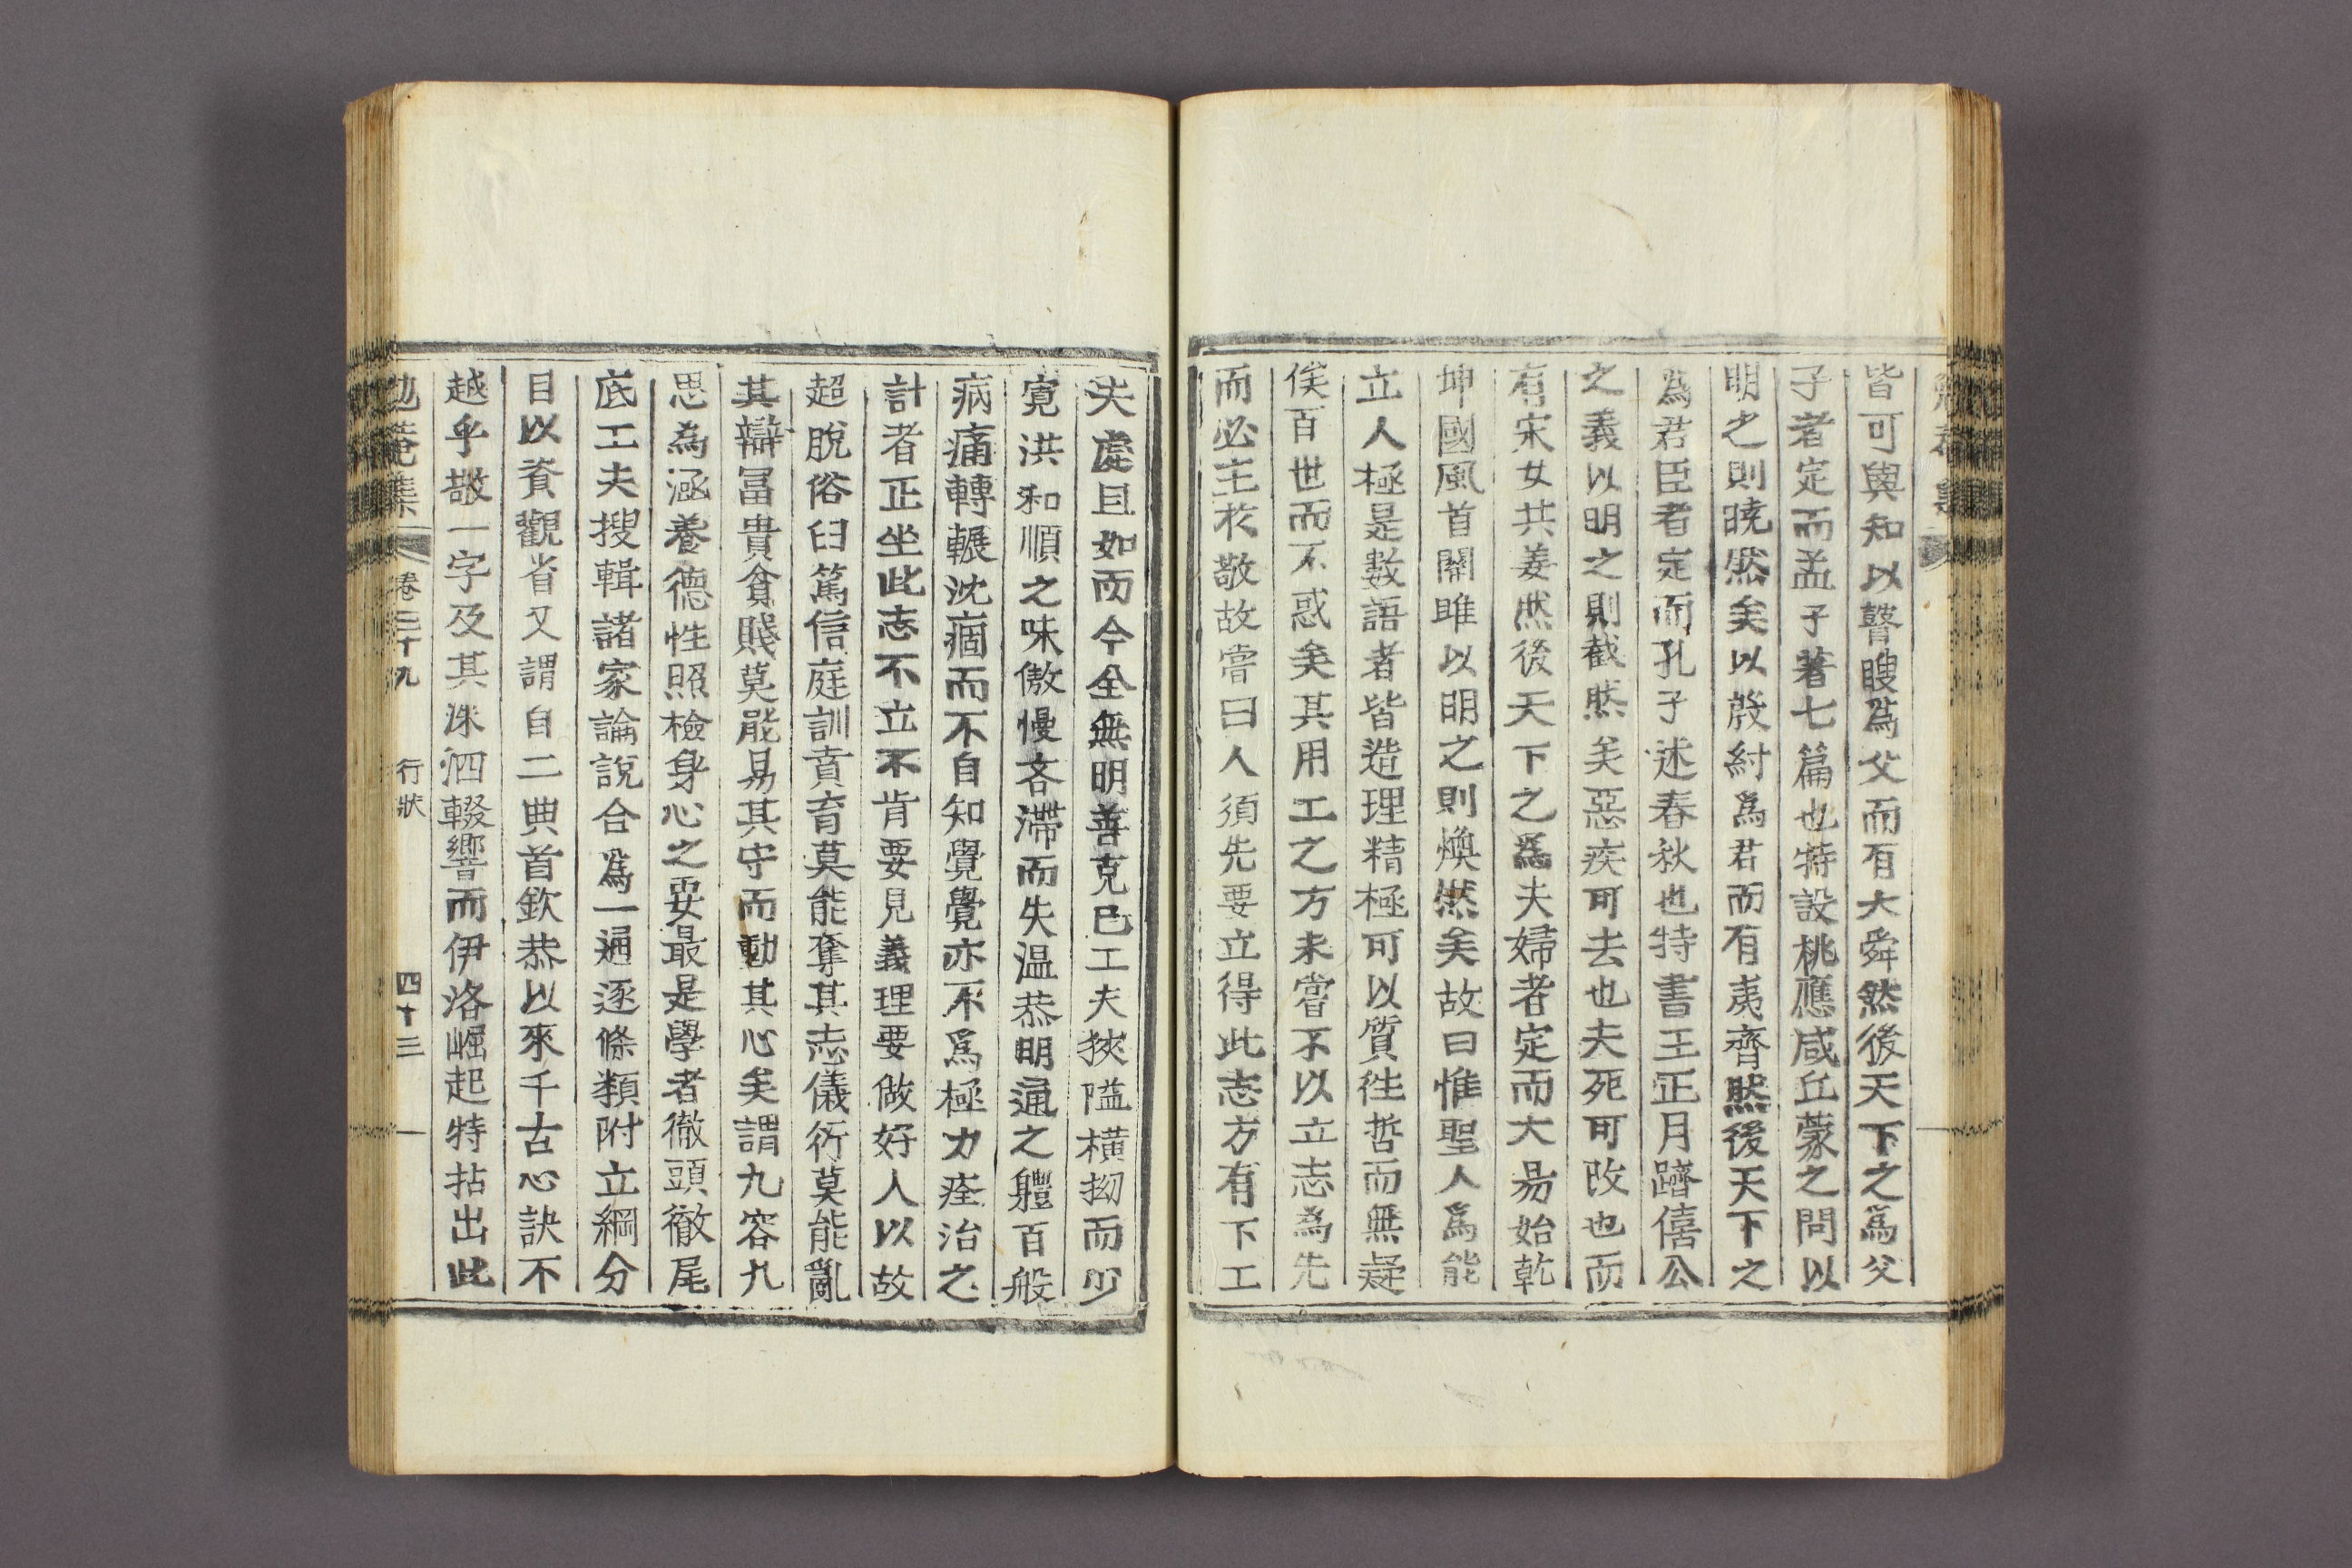 皆可與知以瞽瞍爲父而有大舜然後天下之爲父
子者定而孟子著七篇也特設桃應咸丘蒙之問以
明之則曉然矣以殷紂爲君而有夷齊然後天下之
爲君臣者定而孔子述春秋也特書王正月躋僖公
之義以明之則截然矣惡疾可去也夫死可改也而
有宋女共姜然後天下之爲夫婦者定而大易始乾
坤國風首關雎以明之則煥然矣故曰惟聖人爲能
立人極是數語者皆造理精極可以質往哲而無疑
俟百世而不惑矣其用工之方未嘗不以立志爲先
而必主於敬故嘗曰人須先要立得此志方有下工
夫處且如而今全無明善克己工夫狹隘橫拗而少
寬洪和順之味傲慢吝滯而失温恭明通之軆百般
病痛轉輾沈痼而不自知覺覺亦不爲極力痊治之
計者正坐此志不立不肯要見義理要做好人以故
超脫俗臼篤信庭訓賁育莫能奪其志儀衍莫能亂
其辯冨貴貧賤莫能易其守而動其心矣謂九容九
思為涵養德性照檢身心之要最是學者徹頭徹尾
底工夫搜輯諸家論說合爲一通逐條類附立綱分
目以資觀省又謂自二典首欽恭以來千古心訣不
越乎敬一字及其洙泗輟響而伊洛崛起特拈出此
勉菴集 卷三十九 行狀 四十三